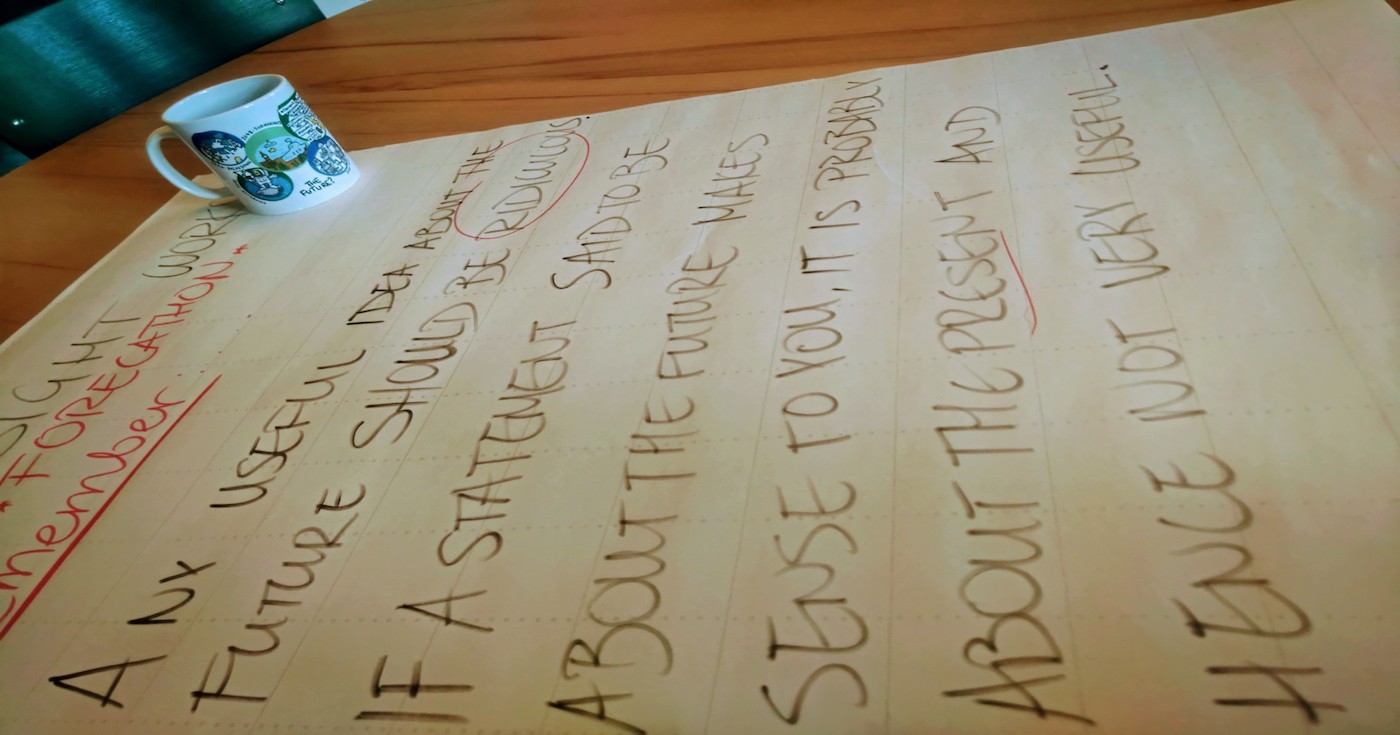 SIGHT WORK
* FORECATHON *
emember:
ANY USEFUL IDEA ABOUT THE
FUTURE SHOULD BE RIDICULOUS!
IF A STATEMENT SAID TO BE
ABOUT THE FUTURE MAKES
SENSE TO YOU, IT IS PROBABLY
ABOUT THE PRESENT AND
HENCE NOT VERY USEFUL.
THE FUTURE?